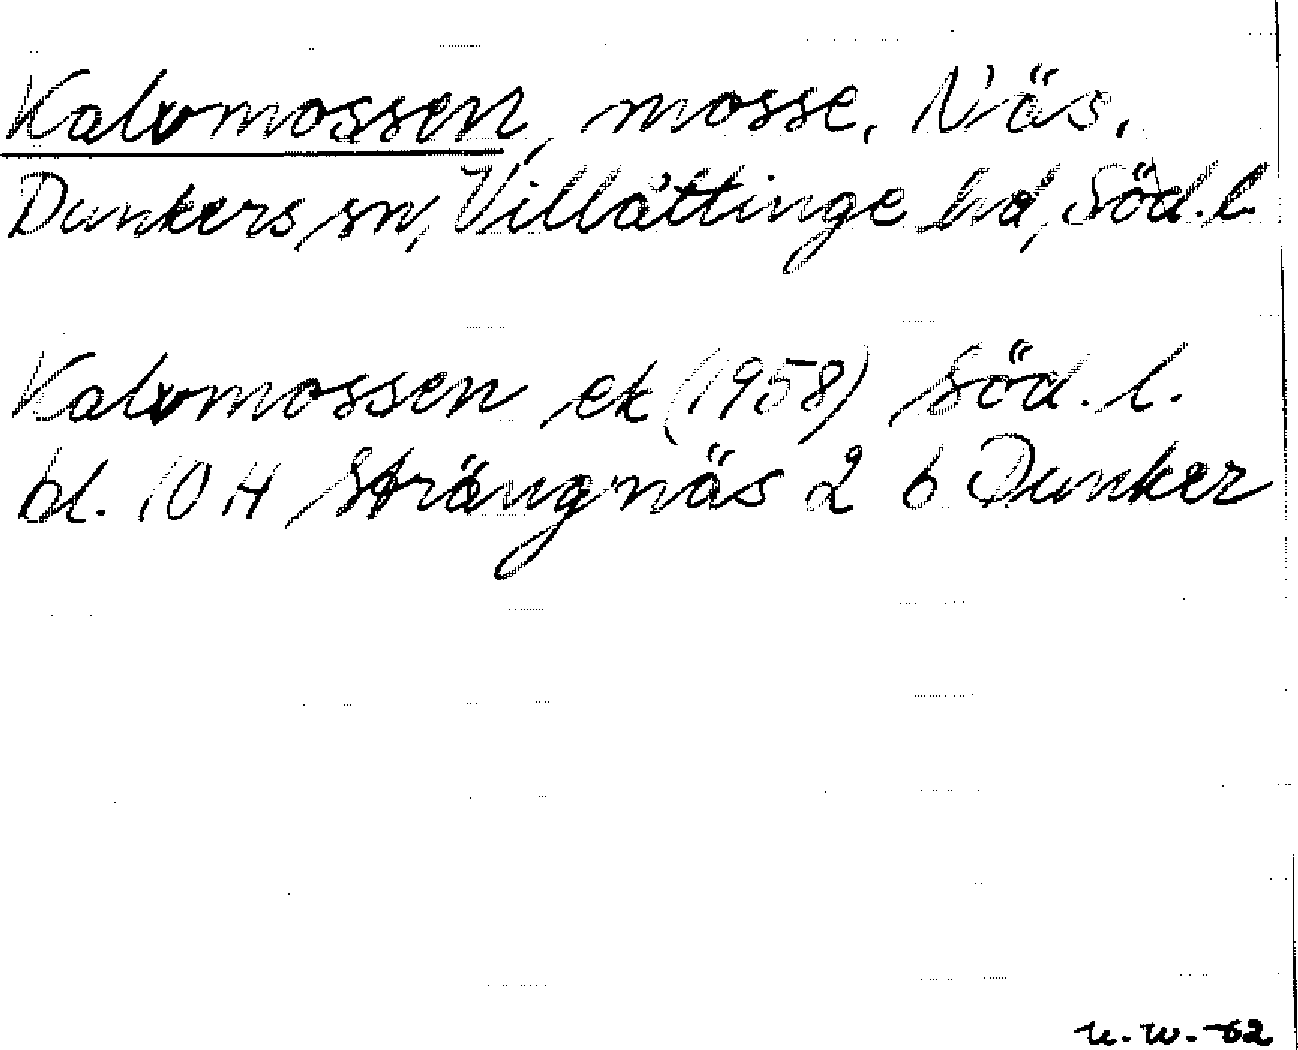 Kalvmossen, mosse, Näs,
Dunkers sn, Villåttinge hd, Söd.l.
Kalvmossen ek (1958) Söd. l.
bl. 10 H Strängnäs 2 b Dunker
u.w.-62